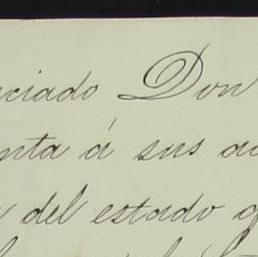 ciado Don
nta á sus
del estado